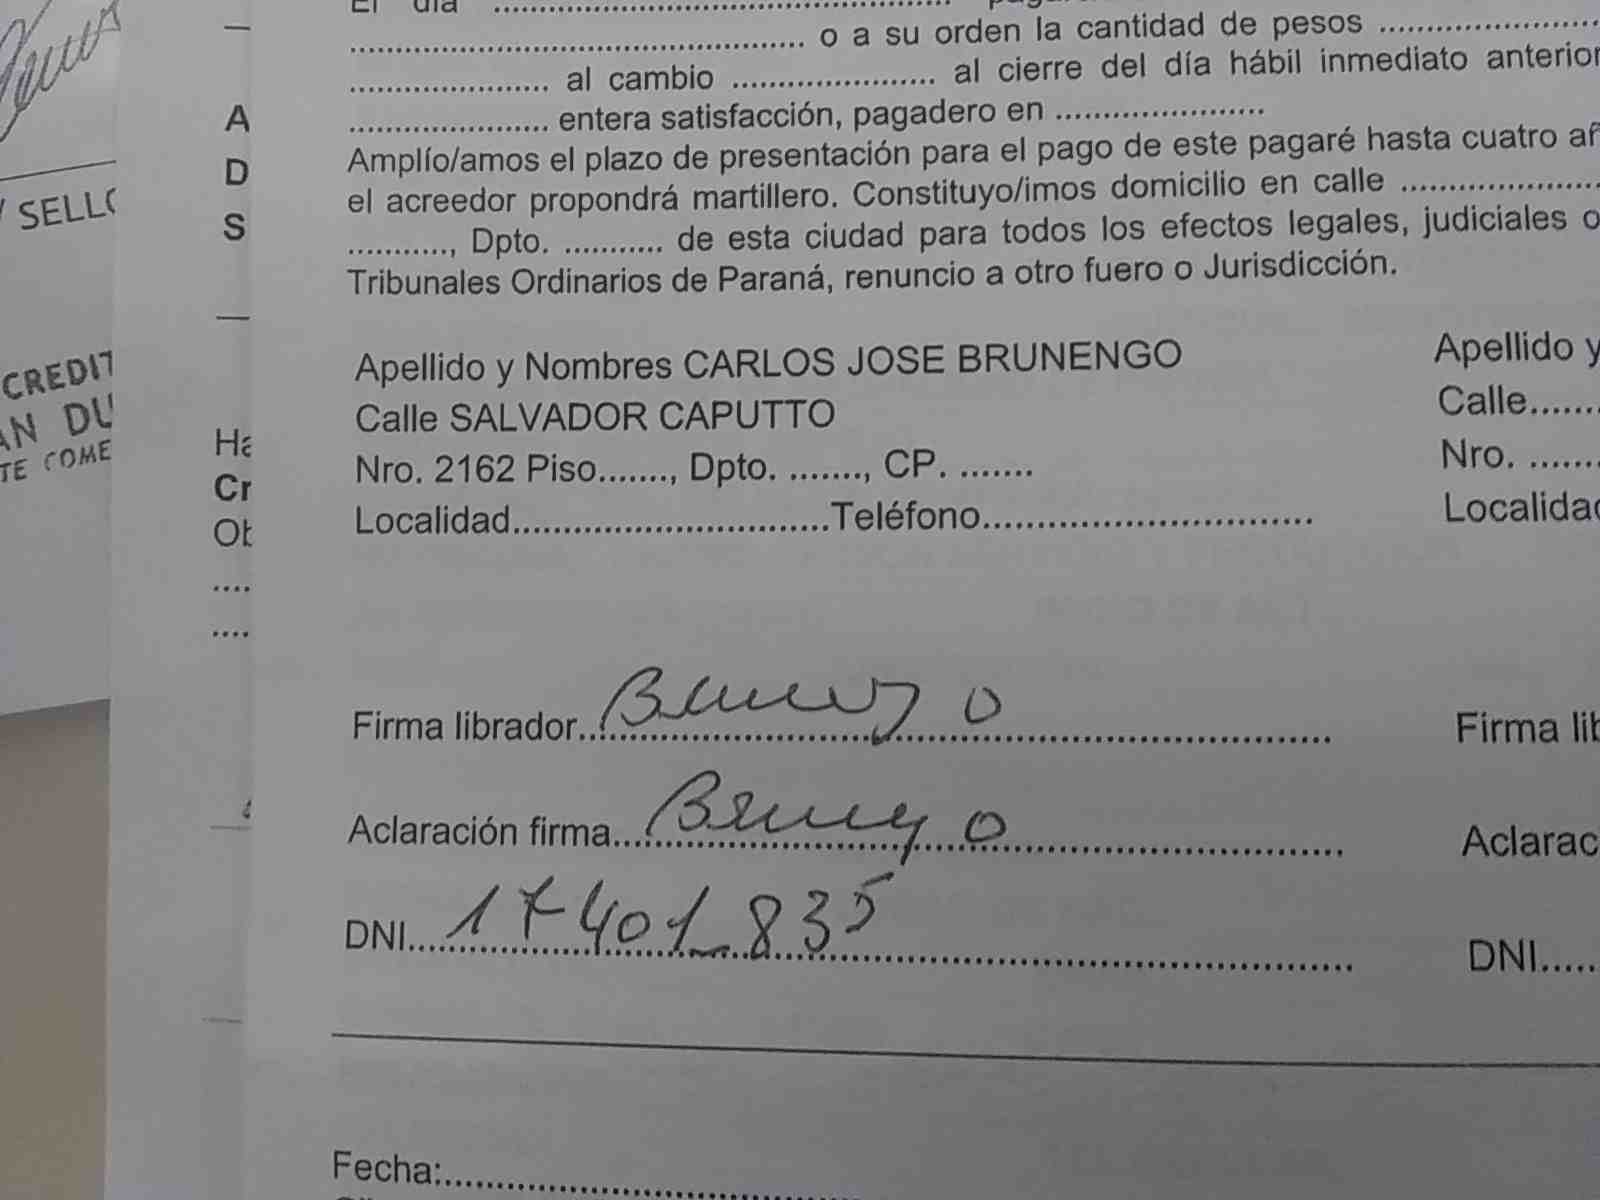 El día ........................................
.............................................. o a su orden la cantidad de pesos ........................
.................... al cambio .................... al cierre del día hábil inmediato anterior
.................... entera satisfacción, pagadero en .....................
Amplío/amos el plazo de presentación para el pago de este pagaré hasta cuatro
el acreedor propondrá martillero. Constituyo/imos domicilio en calle ....................
..........., Dpto. .......... de esta ciudad para todos los efectos legales, judiciales o
Tribunales Ordinarios de Paraná, renuncio a otro fuero o Jurisdicción.
Apellido y Nombres CARLOS JOSE BRUNENGO
Calle SALVADOR CAPUTTO
Nro. 2162 Piso......., Dpto. ......., CP. .......
Localidad................................Teléfono.................................
Firma librador.. Brunengo
Aclaración firma.... Brunengo
DNI.... 17401_835
Fecha:................................
Apellido y
Calle.......
Nro. .......
Localidad
Firma
DNI.....
A
D
S
SELLO